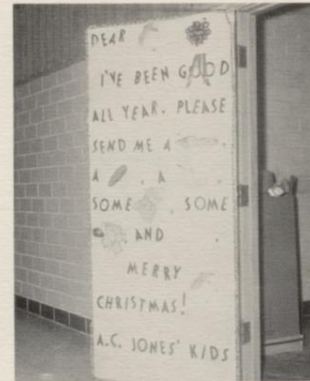 DEAR
I'VE BEEN GOOD
ALL YEAR. PLEASE
SEND ME A .
A , A
SOME , SOME
AND .
MERRY
CHRISTMAS!
A.C. JONES' KIDS